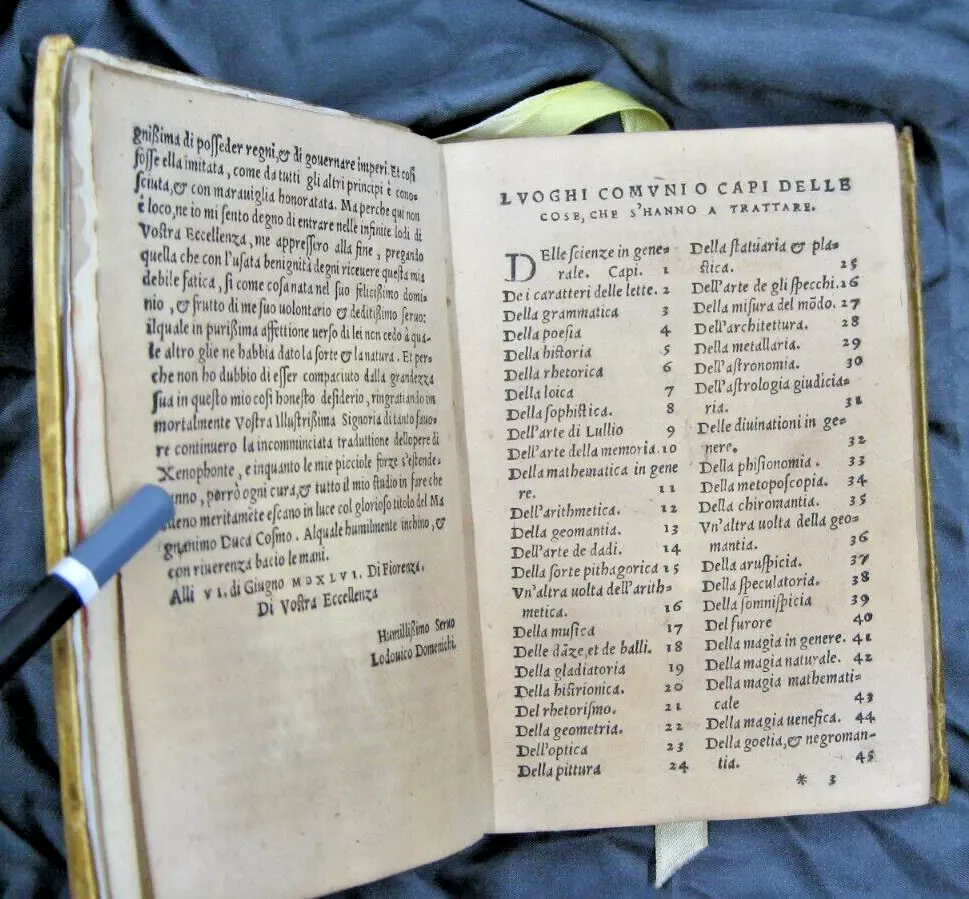 gnißima di poſſeder regni, & di gouernare imperi. Et coſi
foſſe ella imitata, come da tutti gli altri principi è cono-
ſciuta, & con marauiglia honoratata. Ma perche qui non
è loco, ne io mi ſento degno di entrare nelle infinite lodi di
Voſtra Eccellenza, me appreſſero alla fine, pregando
quella che con l'uſata benignità degni riceuere queſta mia
debile fatica, ſi come coſa nata nel ſuo feliciſſimo domi-
nio, & frutto di me ſuo uolontario & deditißimo ſeruo:
ilquale in purißima affettione uerſo di lei non cedo à qua-
le altro glie ne habbia dato la ſorte & la natura. Et per-
che non ho dubbio di eſſer compaciuto dalla grandezza
ſua in queſto mio coſi honeſto deſiderio, ringratiando im
mortalmente Voſtra Illuſtrißima Signoria di tanto fauo-
re continuero la incomminciata traduttione dell opere di
Xenophonte, e inquanto le mie picciole forze s'eſtende-
anno, porrò ogni cura, & tutto il mio ſtudio in fare che
meritamẽte eſcano in luce col glorioſo titolo del Ma
gnanimo Duca Coſmo. Alquale humilmente inchino, &
con riuerenza bacio le mani.
Alli VI. di Giugno MDXLVI. Di Fiorenza.
Di Voſtra Eccellenza
Humillißimo Seruo
Lodouico Domenichi.
LVOGHI COMVNI O CAPI DELLE
COSE, CHE S'HANNO A TRATTARE.
DElle ſcienze in gene-
rale. Capi. 1
De i caratteri delle lette. 2
Della grammatica 3
Della poeſia 4
Della hiſtoria 5
Della rhetorica 6
Della loica 7
Della ſophiſtica. 8
Dell'arte di Lullio 9
Dell'arte della memoria. 10
Della mathematica in gene
re. 11
Dell'arithmetica. 12
Della geomantia. 13
Dell'arte de dadi. 14
Della ſorte pithagorica 15
Vn'altra uolta dell'arith-
metica. 16
Della muſica 17
Delle dãze, et de balli. 18
Della gladiatoria 19
Della hiſtrionica. 20
Del rhetoriſmo. 21
Della geometria. 22
Dell'optica 23
Della pittura 24
Della ſtatuaria & pla-
ſtica. 25
Dell'arte de gli ſpecchi. 26
Della miſura del mõdo. 27
Dell'architettura. 28
Della metallaria. 29
Dell'aſtronomia. 30
Dell'aſtrologia giudicia-
ria. 31
Delle diuinationi in ge-
nere. 32
Della phiſionomia. 33
Della metopoſcopia. 34
Della chiromantia. 35
Vn'altra uolta della geo-
mantia. 36
Della aruſpicia. 37
Della ſpeculatoria. 38
Della ſomniſpicia 39
Del furore 40
Della magia in genere. 41
Della magia naturale. 42
Della magia mathemati-
cale 43
Della magia uenefica. 44
Della goetia, & negroman-
tia. 45
* 3